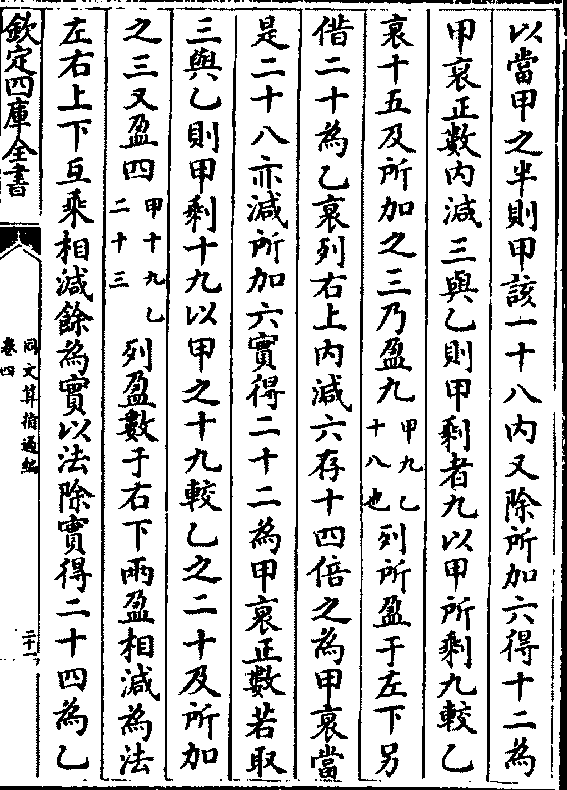 以當甲之半則甲該一十八内又除所加六得十二為
甲衰正數内減三與乙則甲剩者九以甲所剩九較乙
衰十五及所加之三乃盈九甲九乙十八也列所盈于左下另
借二十為乙衰列右上内減六存十四倍之為甲衰當
是二十八亦減所加六實得二十二為甲衰正數若取
三與乙則甲剩十九以甲之十九較乙之二十及所加
之三又盈四甲十九乙二十三列盈數于右下兩盈相減為法
左右上下互乘相減餘為實以法除實得二十四為乙
欽定四庫全書
同文算指通編
卷四
二十一